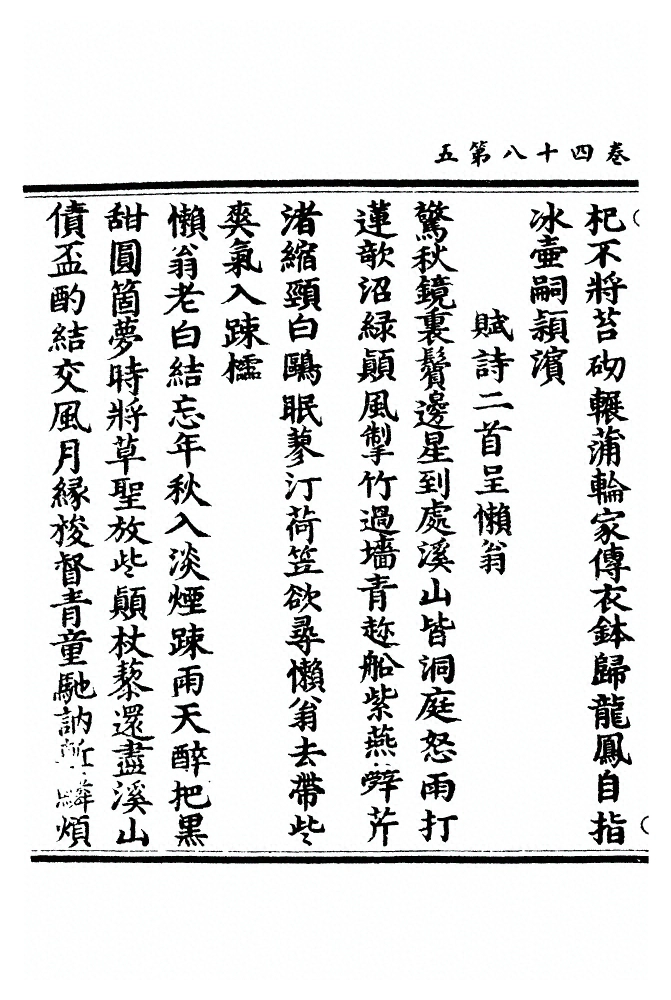 卷四十八第五
杞不將苔砌輾蒲輪家傳衣鉢歸龍鳳自指
冰壺嗣潁濱
賦詩二首呈懶翁
驚秋鏡裏鬢邊星到處溪山皆洞庭怒雨打
蓮欹沼緑顛風掣竹過墻青趂船紫燕辤芹
渚縮頸白鷗眠蓼汀荷笠欲尋懶翁去帶些
爽氣入踈櫺
懶翁老白結忘年秋入淡煙踈雨天醉把黑
甜圓箇夢時將草聖放些顛杖藜還盡溪山
債盃酌結交風月緣梭督青童馳訥煩